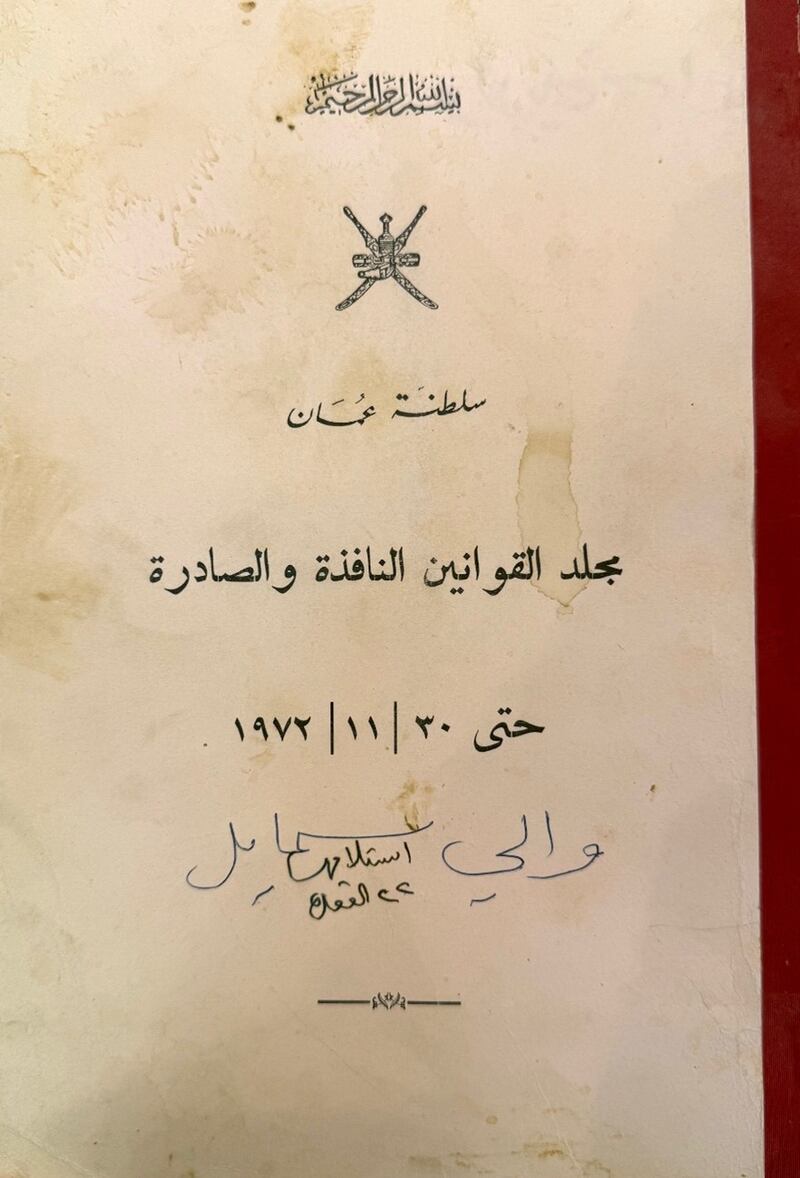 بسم الله الرحمن الرحيم
سلطنة عُمَان
مجلد القوانين النافذة والصادرة
حتى ٣٠ | ١١ | ١٩٧٢
والي سمايل
استلامه
٢٢ القعدة